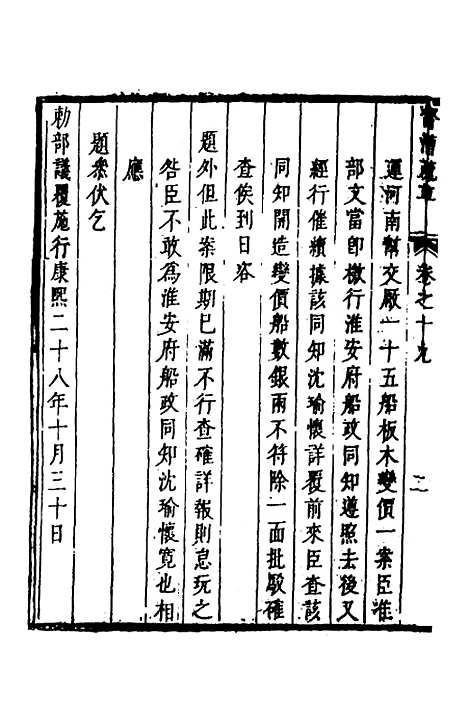 督漕疏草
卷之十九
二
運河南幫交厰一十五船板木變價一案臣准
部文當卽檄行淮安府船政同知遵照去後又
經行催續據該同知沈瑜懷詳覆前來臣查該
同知開造變價船數銀兩不符除一面批駁確
查俟到日咨
題外但此案限期已滿不行查確詳報則怠玩之
咎臣不敢爲淮安府船政同知沈瑜懷寬也相
應
題叅伏乞
勅部議覆施行康熙二十八年十月三十日